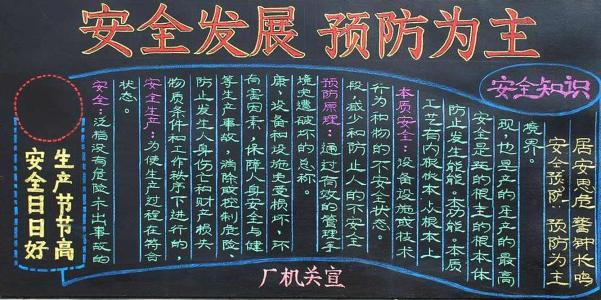 安全发展 预防为主
安全知识
生产节节高
安全日日好
安全：泛指没有危险不出事故的
状态。
安全生产：为使生产过程在符合
物质条件和工作秩序下进行的，
防止发生人身伤亡和财产损失
等生产事故，消除或控制危险、
有害因素，保障人身安全与健
康，设备和设施免受损坏，环
境免遭破坏的总称。
预防原理：通过有效的管理手
段，减少和防止人的不安全
行为和物的不安全状态。
本质安全：设备设施或技术
工艺有内根依本占根本上
防止发生能能。本功能。本质
安全是五的根主的根本体
现，也是产的生产的最高
境界。
居安思危 警钟长鸣
安全预防 预防为主
厂机关宣